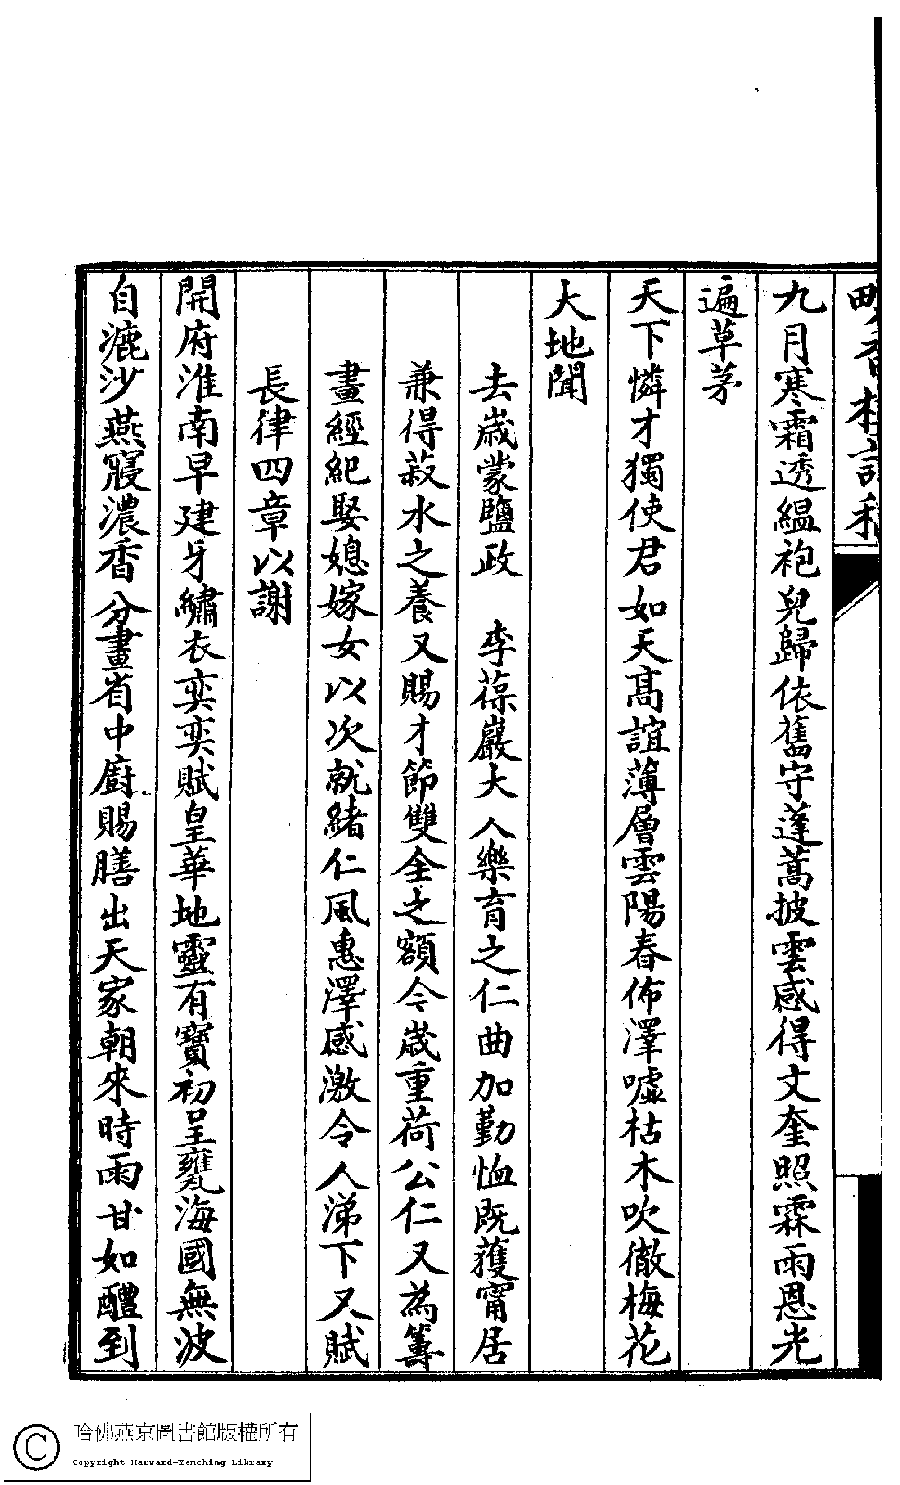 畹香樓詩稿
九月寒霜透縕袍兒歸依舊守蓬蒿披雲感得文奎照霖雨恩光
遍草茅
天下憐才獨使君如天高誼薄層雲陽春佈澤噓枯木吹徹梅花
大地聞
去歲蒙鹽政　李葆巖大人樂育之仁曲加勤恤既獲甯居
兼得菽水之養又賜才節雙全之額今歲重荷公仁又為籌
畫經紀娶媳嫁女以次就緒仁風惠澤感激令人涕下又賦
長律四章以謝
開府淮南早建牙繡衣奕奕賦皇華地靈有寶初呈甕海國無波
自漉沙燕寢濃香分畫省中廚賜膳出天家朝來時雨甘如醴到
哈佛燕京圖書館版權所有
Copyright Harvard-Yenching Library